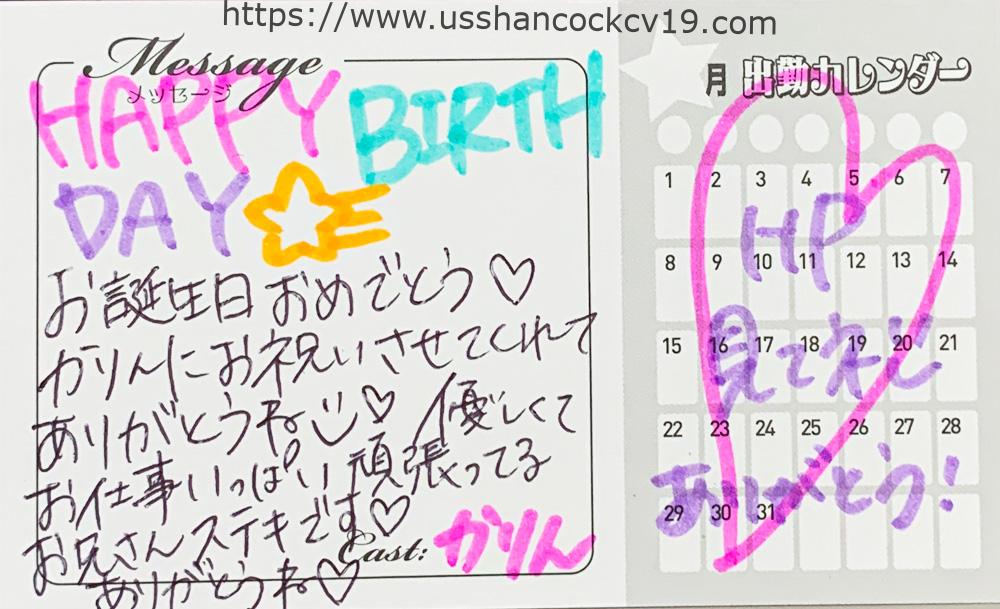 https://www.usshancockcv19.com
Message
メッセージ
HAPPY BIRTH
DAY
お誕生日おめでとう♡
かりんにお祝いさせてくれて
ありがとうね♡ 優しくて
お仕事いっぱい頑張ってる
お兄さんステキです♡
ありがとうね♡
Cast: かりん
月 出勤カレンダー
1 2 3 4 5 6 7
8 9 10 11 12 13 14
15 16 17 18 19 20 21
22 23 24 25 26 27 28
29 30 31
HP
見てネ
ありがとう!